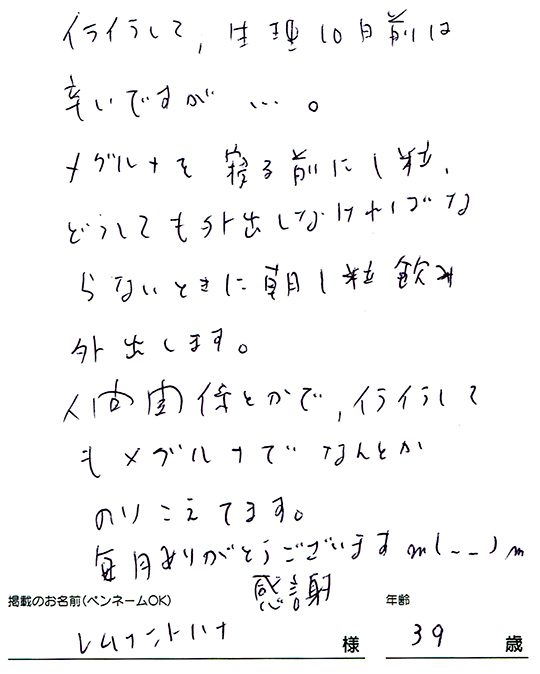 イライラして,生理10日前は
辛いですが…。
メグルナを寝る前に1粒、
どうしても外出しなければな
らないときに朝1粒飲み
外出します。
人間関係とかで,イライラして
もメグルナでなんとか
のりこえてます。
毎月ありがとうございますm(--)m
感謝
掲載のお名前(ペンネームOK)
レムナントハナ 様
年齢
39 歳